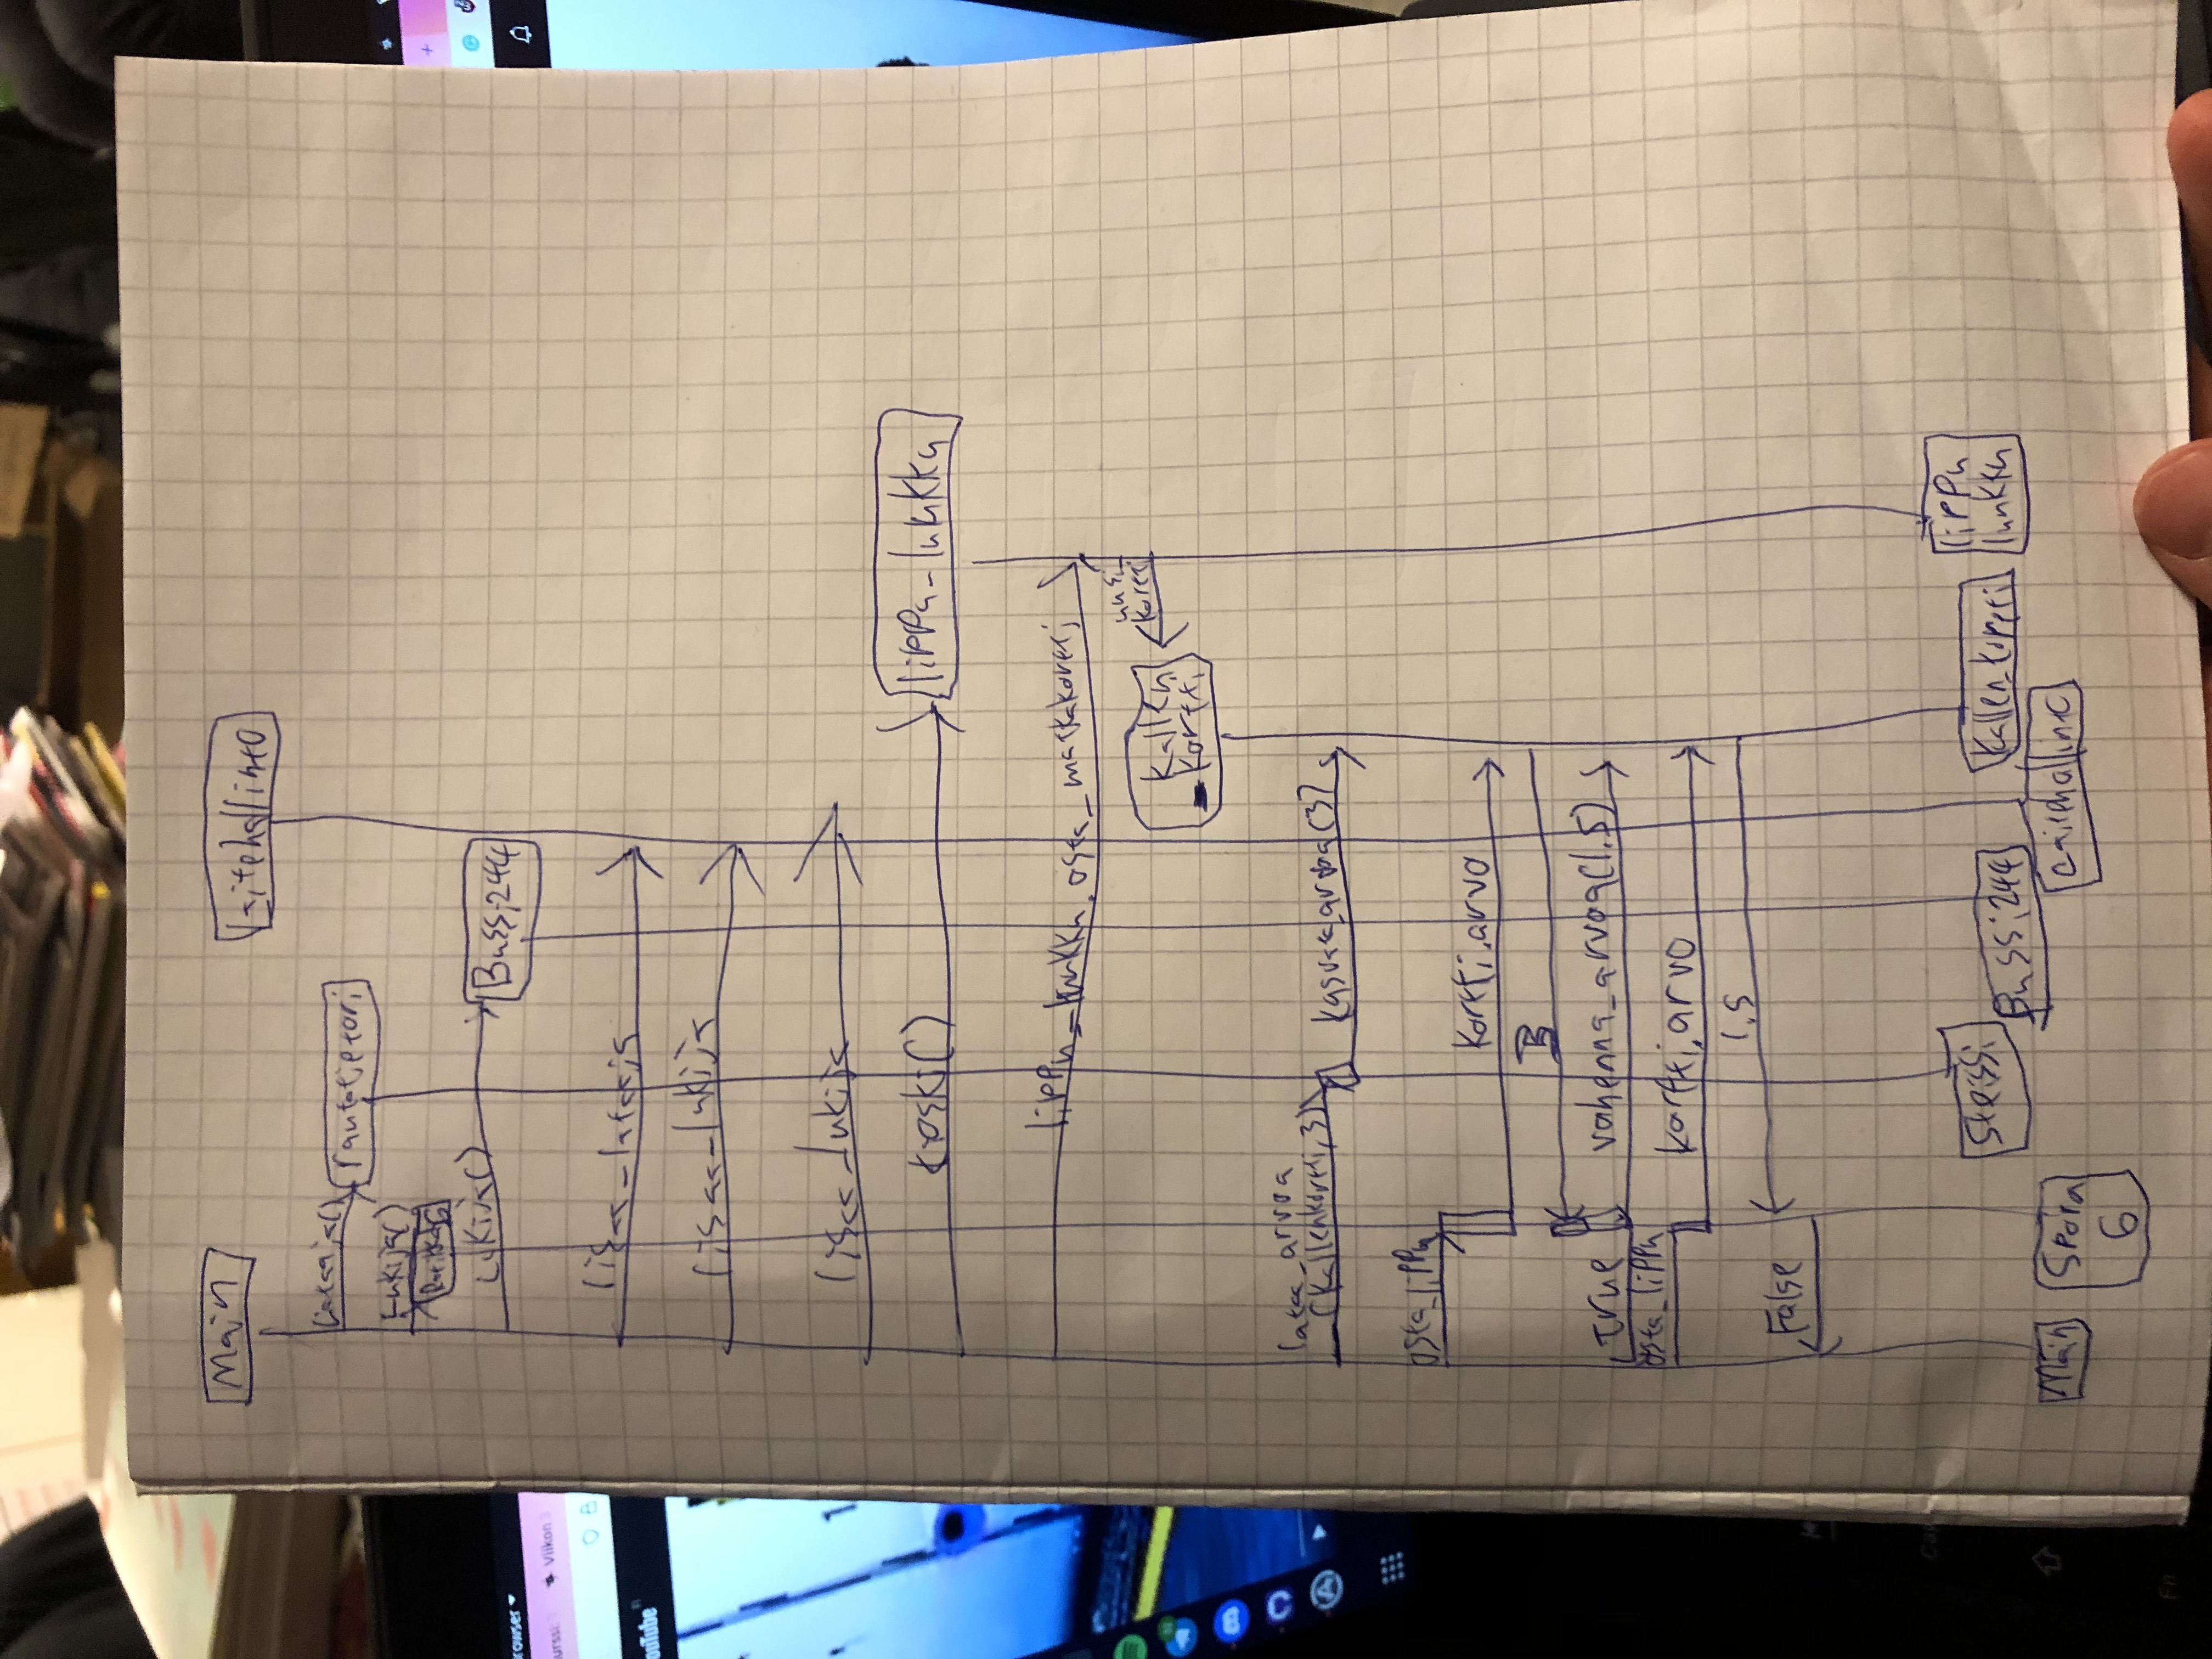 Main
Laitehallinto
Lataaja()
rautatietori
Lukija()
Ratikka6
Lukija()
Bussi244
lisaa_lataaja
lisaa_lukija
lisaa_lukija
kioski()
lippu_luukku
lippu_luukku.osta_matkakortti
uusi_
kortti
kallen
_kortti
lataa_arvoa
(kallenkortti,3)
kasvata_arvoa(3)
osta_lippu
kortti.arvo
3
True
vahenna_arvoa(1.5)
osta_lippu
kortti.arvo
1.5
False
Steissi
Bussi244
kallen_kortti
lippu
luukku
Main
Spora
6
Laitehallinto
rowser
urssi:
Viikon 3
ouTube
FI
Fn